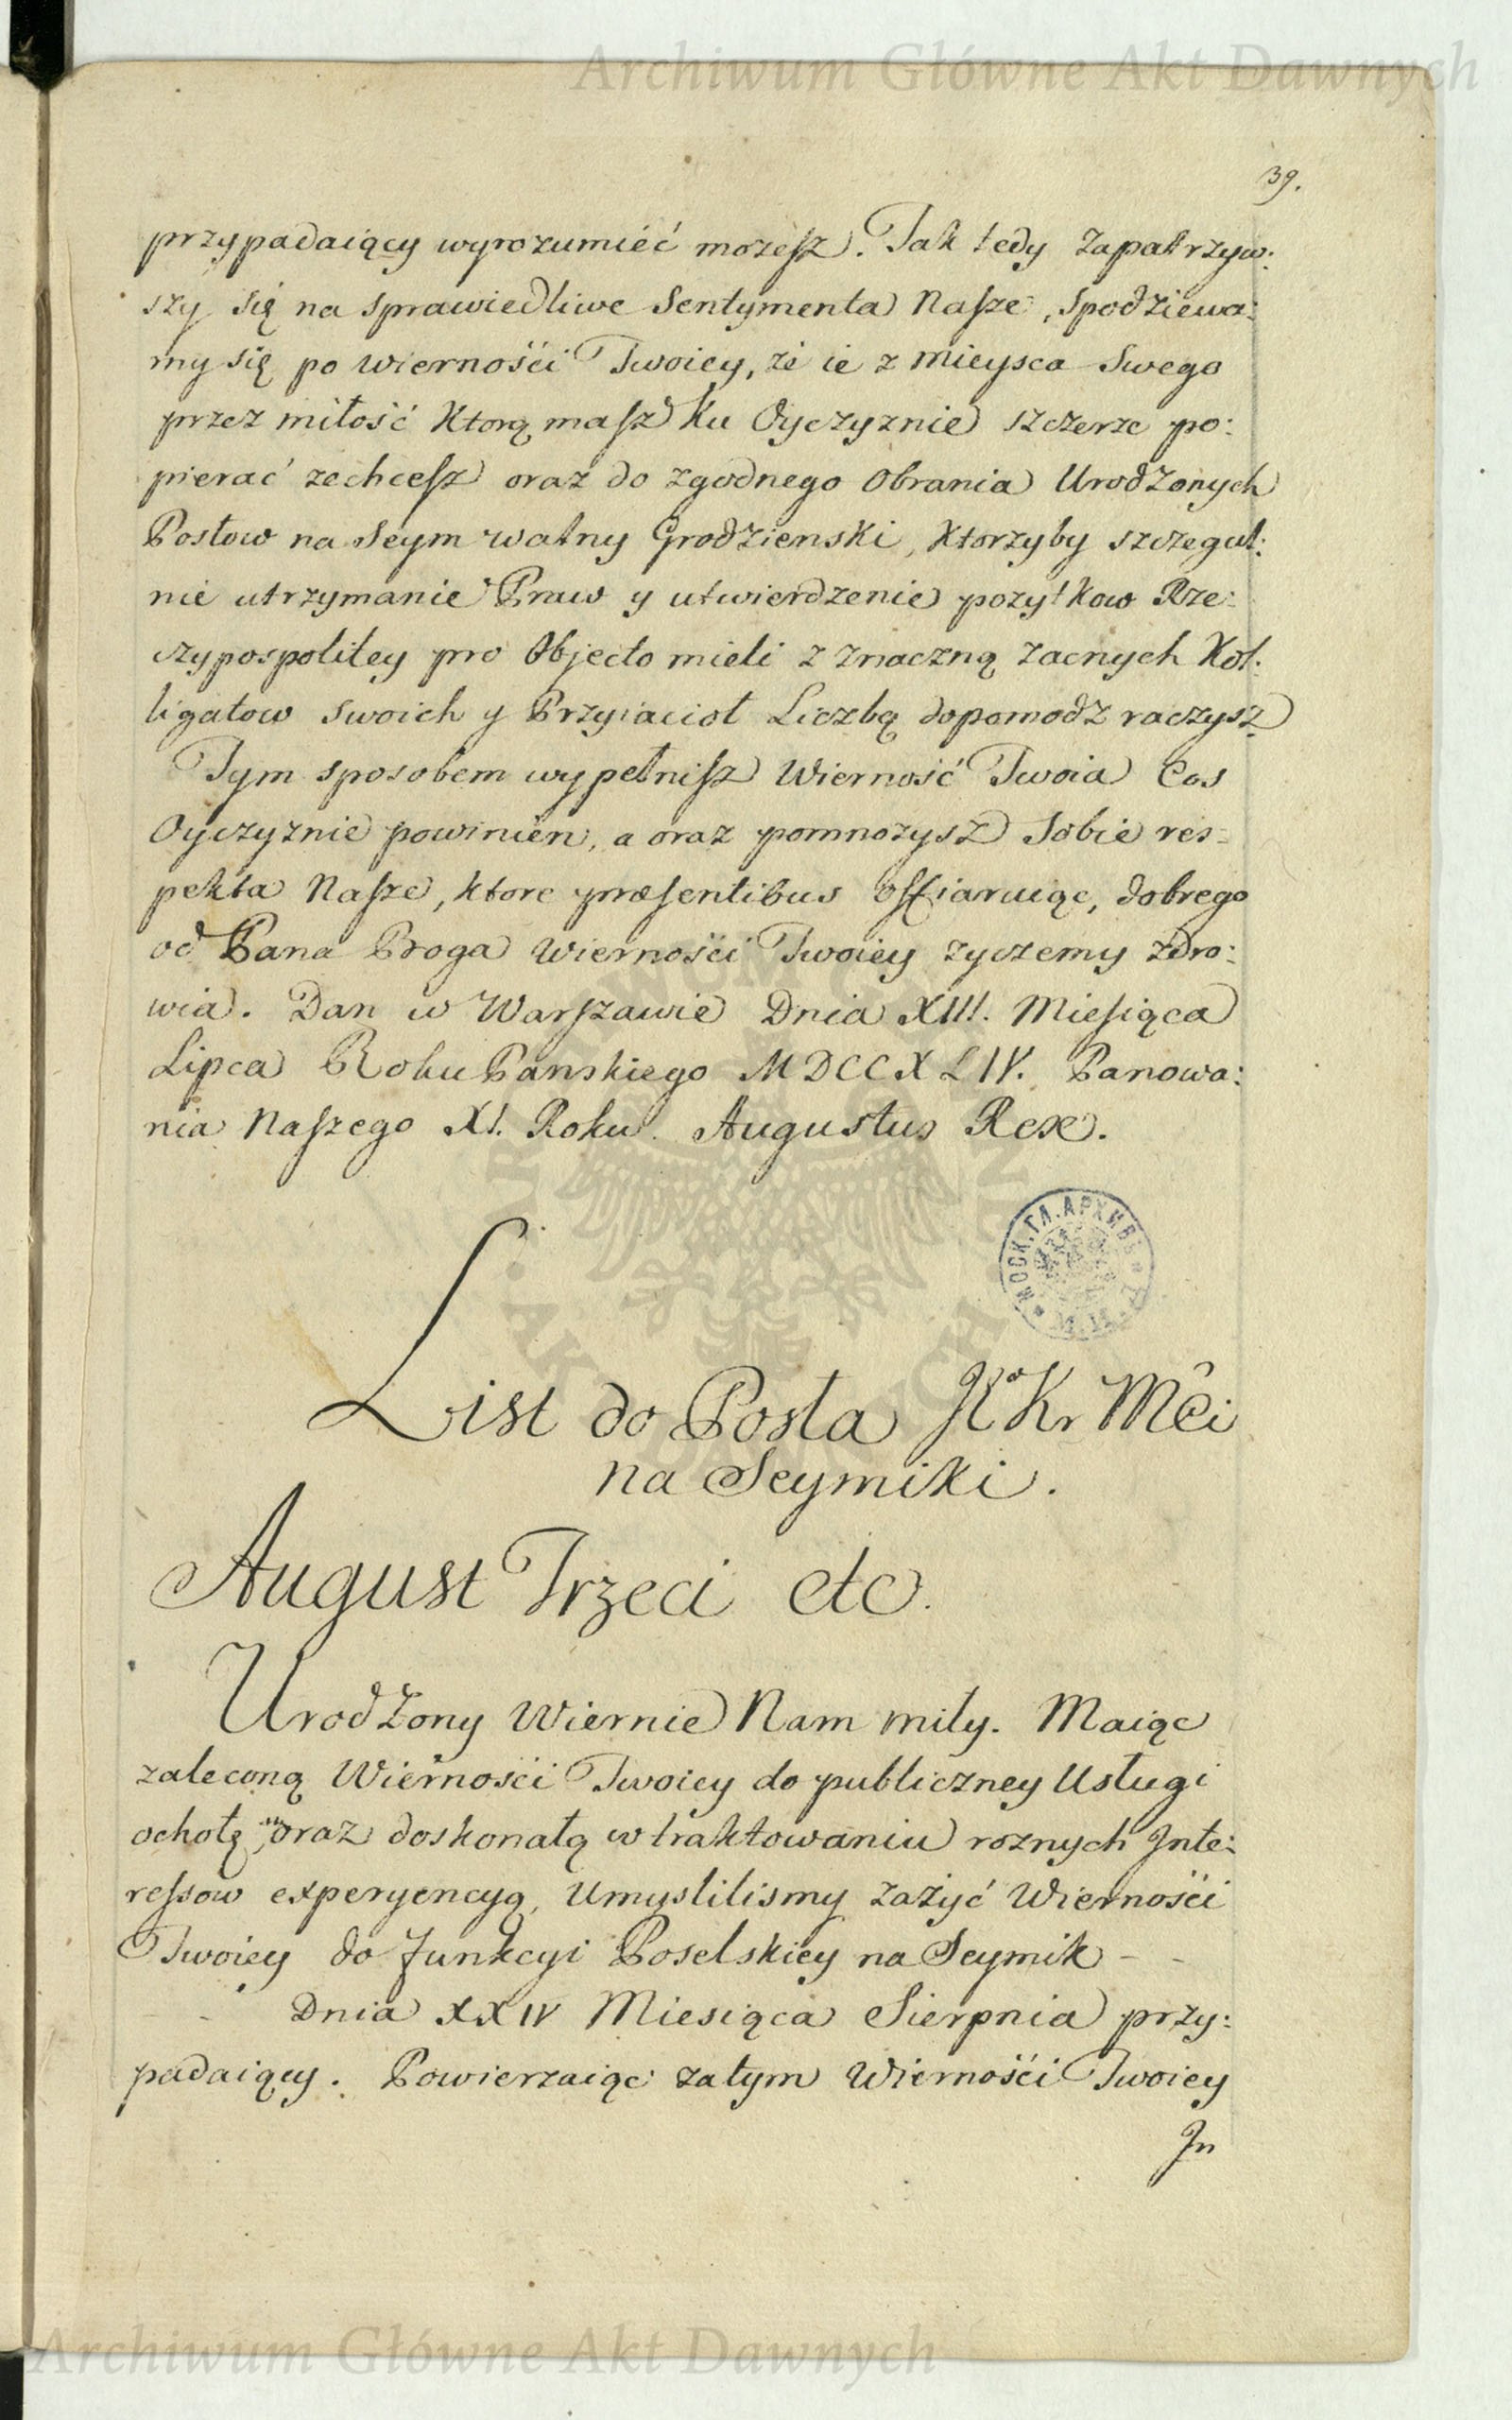 Archiwum Główne Akt Dawnych
39.
przypadaiący wyrozumieć możesz. Tak tedy zapatrzyw:
szy się na sprawiedliwe Sentymenta Nasze, spodziewa:
my się po wiernośći Twoiey, że ie z mieysca Swego
przez miłość ktorą masz ku Oyczyznie szczerze po:
pierać zechcesz oraz do zgodnego Obrania Urodzonych
Posłow na Seym walny Grodzienski, ktorzyby szczegul:
nie utrzymanie Praw y utwierdzenie pozytkow Rze:
czypospolitey pro Objecto mieli z znaczną zacnych Kol:
ligatow swoich y Przyiacioł Liczbą dopomodz raczysz
Tym sposobem wypełnisz Wierność Twoia Cos
Oyczyznie powinien, a oraz pomnożysz Sobie res:
pekta Nasze, ktore præsentibus offiaruiąc, dobrego
od Pana Boga Wiernośći Twoiey zyczemy zdro:
wia. Dan w Warszawie Dnia XIII. Miesiąca
Lipca Roku Panskiego MDCCXLIV. Panowa:
nia Naszego XI. Roku. Augustus Rex.
МОСК. ГЛ. АРХИВЪ
List do Posła JKo Kr Mči
na Seymiki.
August Trzeci etc.
Urodzony Wiernie Nam miły. Maiąc
zaleconą Wiernośći Twoiey do publiczney Usługi
ochotę, oraz doskonałą w traktowaniu roznych Inte:
ressow experyencyą, Umyslilismy zażyć Wiernośći
Twoiey do funkcyi Poselskiey na Seymik - -
- - Dnia XXIV Miesiąca Sierpnia przy:
padaiący. Powierzaiąc zatym Wiernośći Twoiey
In
Archiwum Główne Akt Dawnych